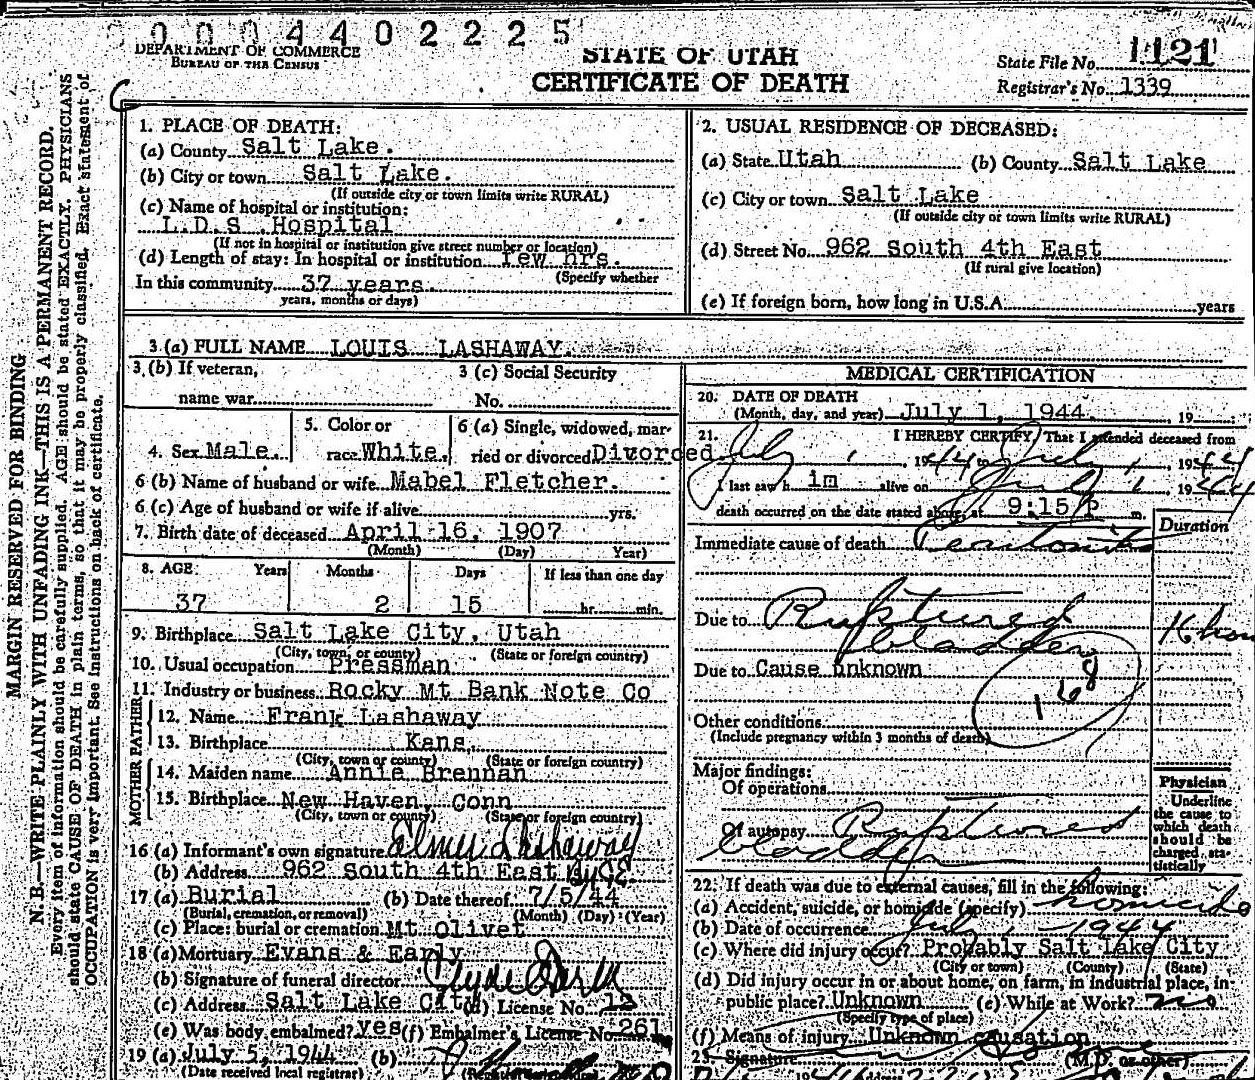 0 0 0 4 4 0 2 2 2 5
DEPARTMENT OF COMMERCE
BUREAU OF THE CENSUS
STATE OF UTAH
CERTIFICATE OF DEATH
State File No. 1121
Registrar's No. 1339
MARGIN RESERVED FOR BINDING
N. B.—WRITE PLAINLY WITH UNFADING INK—THIS IS A PERMANENT RECORD.
Every item of information should be carefully supplied. AGE should be stated EXACTLY. PHYSICIANS
should state CAUSE OF DEATH in plain terms, so that it may be properly classified. Exact statement of
OCCUPATION is very important. See instructions on back of certificate.
1. PLACE OF DEATH:
(a) County Salt Lake.
(b) City or town Salt Lake.
(If outside city or town limits write RURAL)
(c) Name of hospital or institution:
L.D.S. Hospital
(If not in hospital or institution give street number or location)
(d) Length of stay: In hospital or institution few hrs.
(Specify whether
In this community 37 years.
years, months or days)
2. USUAL RESIDENCE OF DECEASED:
(a) State Utah (b) County Salt Lake
(c) City or town Salt Lake
(If outside city or town limits write RURAL)
(d) Street No. 962 South 4th East
(If rural give location)
(e) If foreign born, how long in U.S.A. years
3.(a) FULL NAME LOUIS LASHAWAY.
3.(b) If veteran,
name war
3 (c) Social Security
No.
4. Sex Male.
5. Color or
race White.
6 (a) Single, widowed, mar-
ried or divorced Divorced
6 (b) Name of husband or wife Mabel Fletcher.
6 (c) Age of husband or wife if alive yrs.
7. Birth date of deceased April 16, 1907
(Month) (Day) Year)
8. AGE: Years Months Days If less than one day
37 2 15 hr. min.
9. Birthplace Salt Lake City, Utah
(City, town, or county) (State or foreign country)
10. Usual occupation Pressman
11. Industry or business Rocky Mt Bank Note Co
FATHER
12. Name Frank Lashaway
13. Birthplace Kans.
(City, town or county) (State or foreign country)
MOTHER
14. Maiden name Annie Brennan
15. Birthplace New Haven, Conn
(City, town or county) (State or foreign country)
16 (a) Informant's own signature Elmer Lashaway
(b) Address 962 South 4th East
17 (a) Burial (b) Date thereof 7/5/44
(Burial, cremation, or removal) (Month) (Day) (Year)
(c) Place: burial or cremation Mt Olivet
18 (a) Mortuary Evans & Early
(b) Signature of funeral director
(c) Address Salt Lake City (d) License No. 12
(e) Was body embalmed? yes (f) Embalmer's License No. 261
19 (a) July 5, 1944 (b)
(Date received local registrar)
MEDICAL CERTIFICATION
20. DATE OF DEATH
(Month, day, and year) July 1, 1944. 19
21. I HEREBY CERTIFY, That I attended deceased from
July 1, 1944 to July 1, 1944
I last saw h im alive on July 1, 1944
death occurred on the date stated above, at 9:15 P m.
Duration
Immediate cause of death Peritonitis
Due to Ruptured
bladder
Due to Cause unknown
168
Other conditions
(Include pregnancy within 3 months of death)
Major findings:
Of operations
Of autopsy Ruptured
bladder
Physician
Underline
the cause to
which death
should be
charged sta-
tistically
22. If death was due to external causes, fill in the following:
(a) Accident, suicide, or homicide (specify) homicide
(b) Date of occurrence July 1 - 1944
(c) Where did injury occur? Probably Salt Lake City
(City or town) (County) (State)
(d) Did injury occur in or about home, on farm, in industrial place, in
public place? Unknown (e) While at Work? no
(Specify type of place)
(f) Means of injury Unknown causation
Signature (M.D. or other)